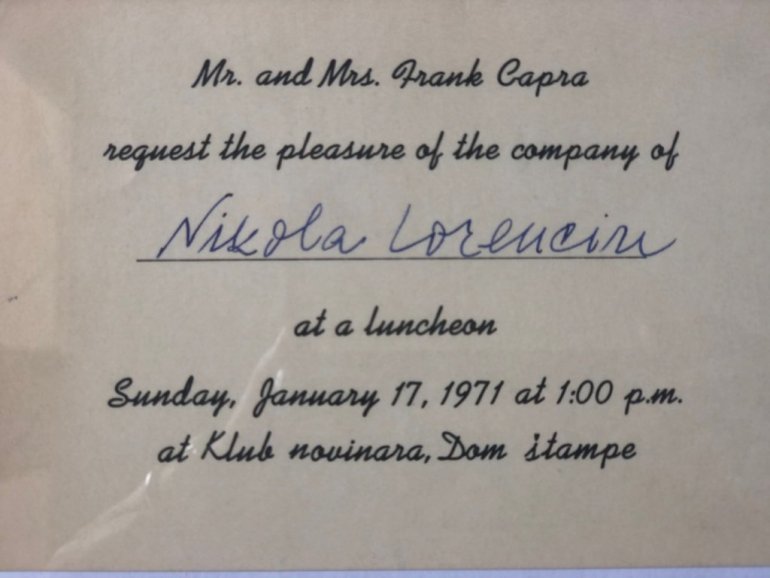 Mr. and Mrs. Frank Capra
request the pleasure of the company of
Nikola Lorencin
at a luncheon
Sunday, January 17, 1971 at 1:00 p.m.
at Klub novinara, Dom štampe